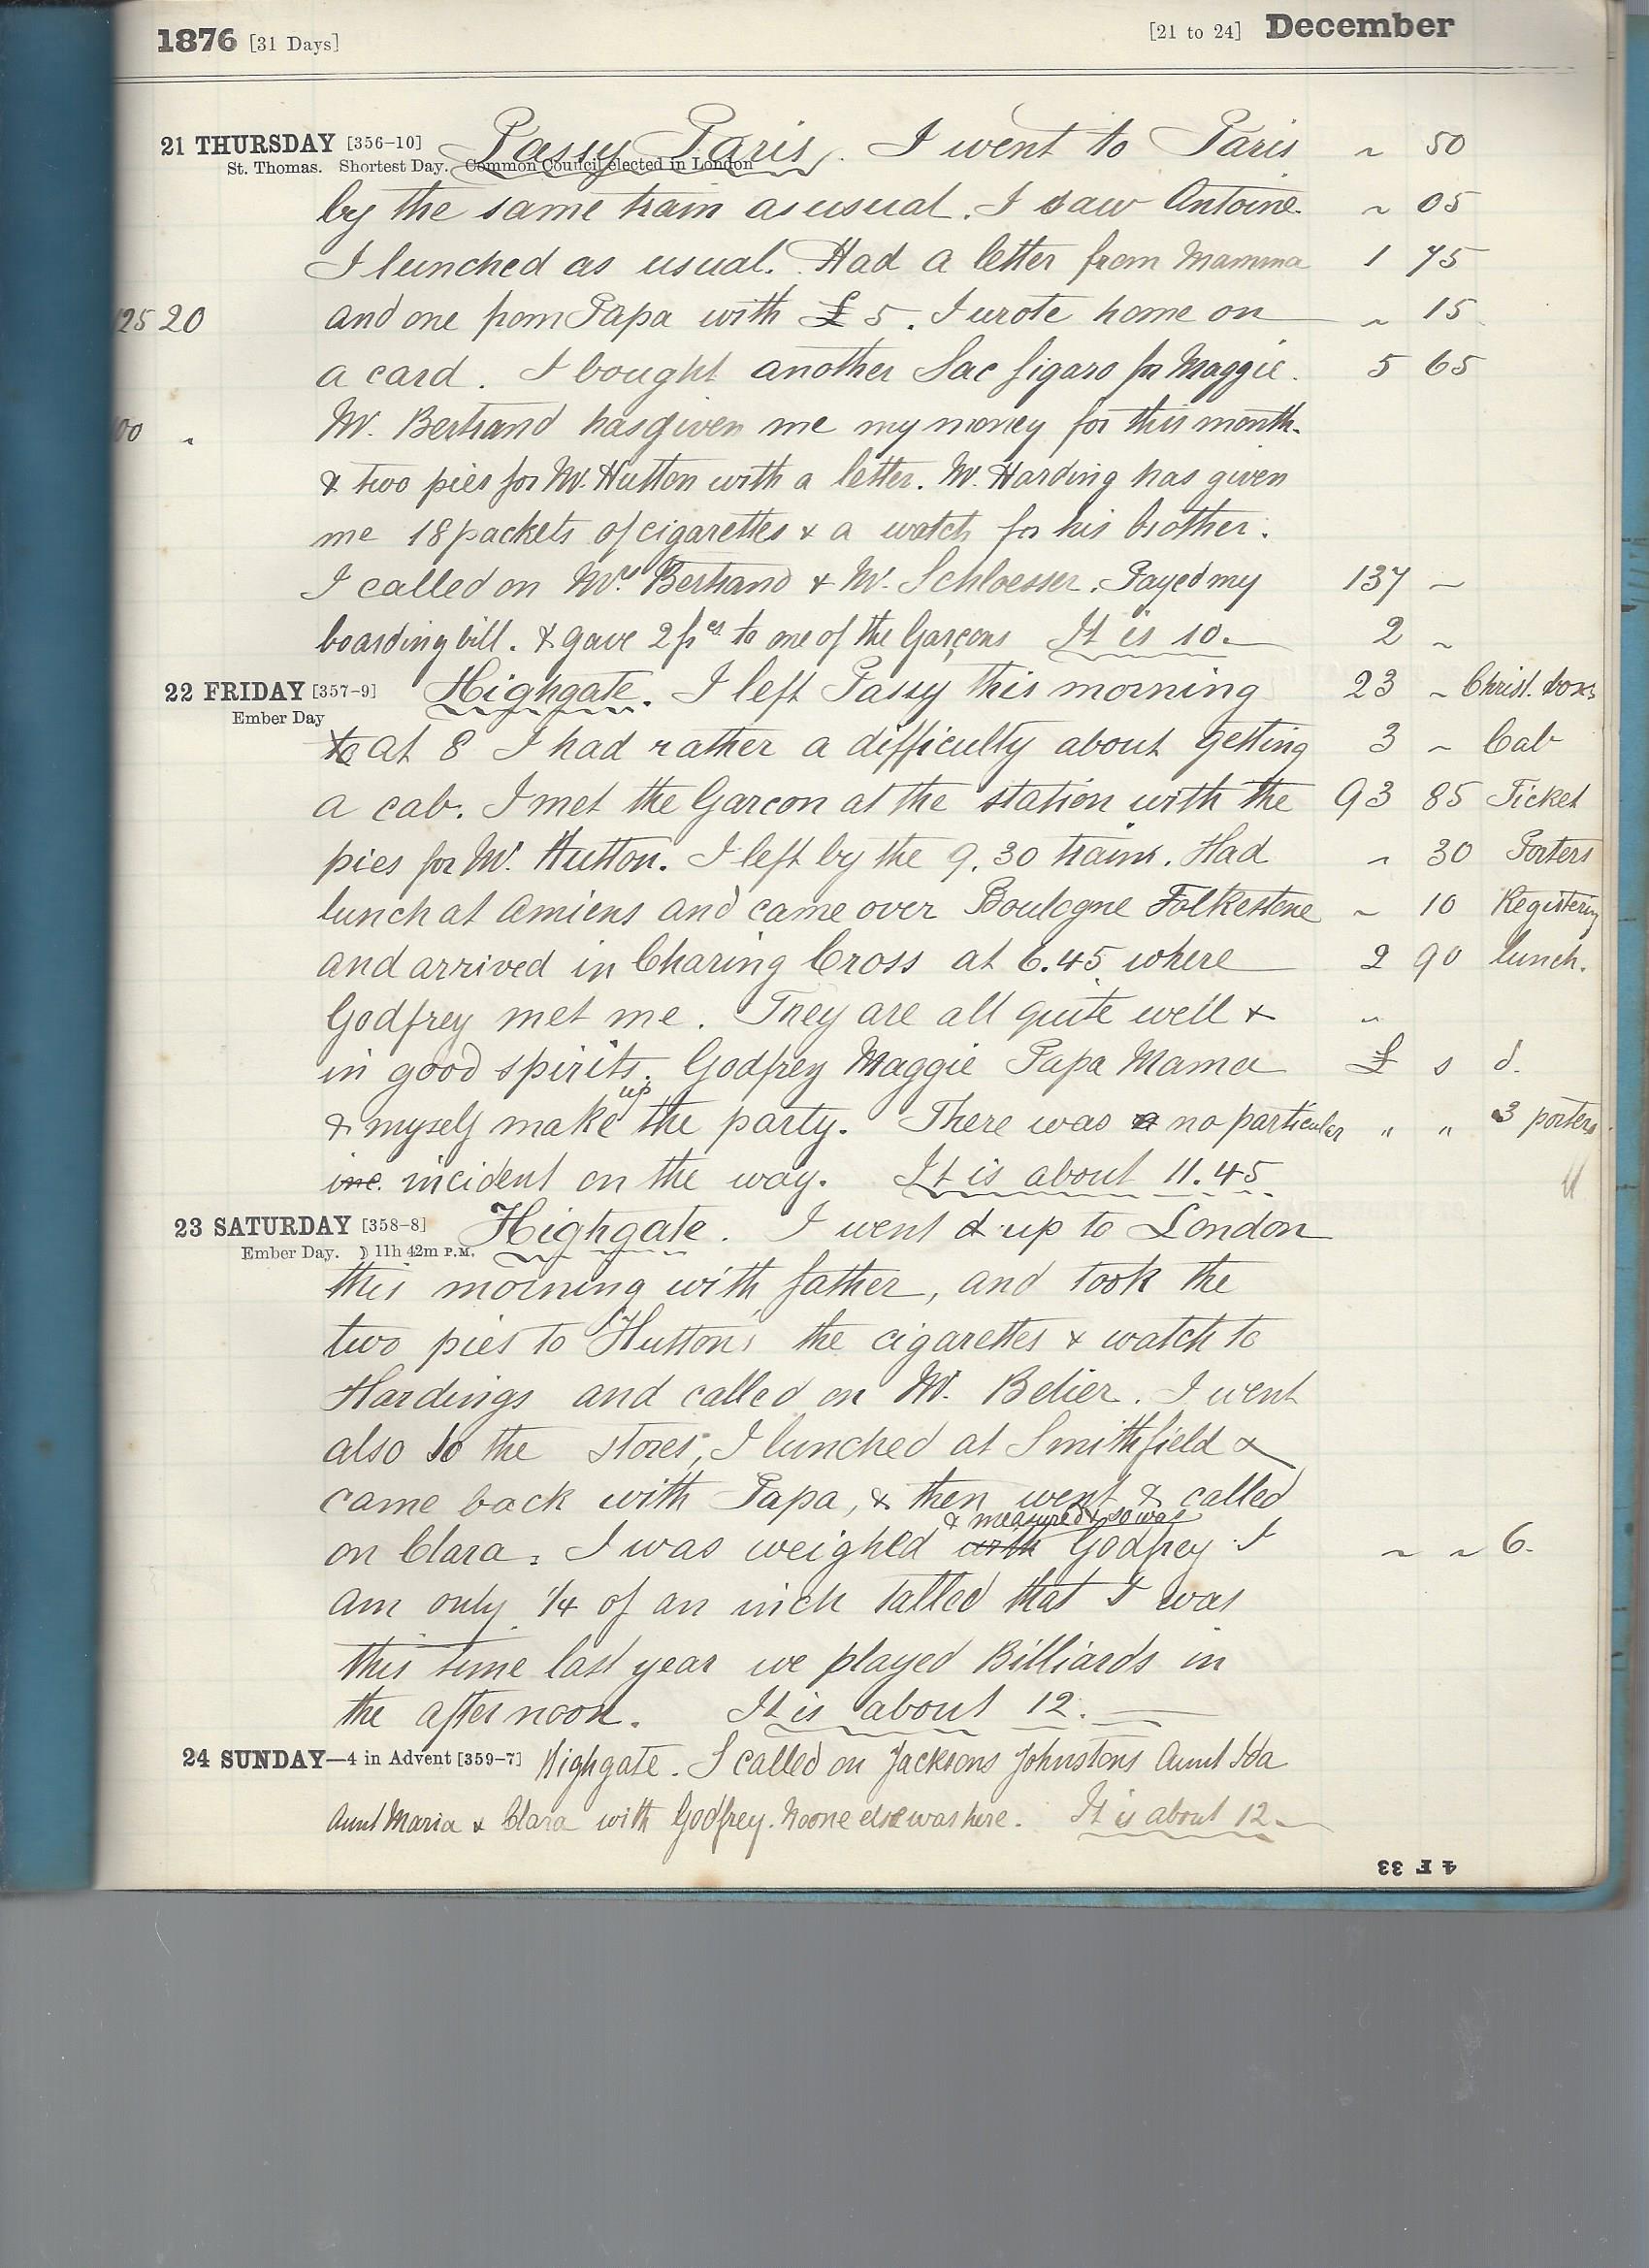 1876 [31 Days] [21 to 24] December
21 THURSDAY [356-10] Passy Paris. I went to Paris ~ 50
St. Thomas. Shortest Day. Common Council elected in London
by the same train as usual. I saw Antoine. ~ 05
I lunched as usual. Had a letter from Mamma 1 75
125 20 and one from Papa with £5. I wrote home on ~ 15
a card. I bought another Sac figaro for Maggie. 5 65
00 ~ Mr. Bertrand has given me my money for this month.
& two pies for Mr. Hutton with a letter. Mr. Harding has given
me 18 packets of cigarettes & a watch for his brother.
I called on Mrs. Bertrand & Mr. Schloesser. Payed my 137 ~
boarding bill. & gave 2 frcs to one of the Garçons It is 10. 2 ~
22 FRIDAY [357-9] Highgate. I left Passy this morning 23 ~ Christ. boxs
Ember Day
to at 8 I had rather a difficulty about getting 3 ~ Cab
a cab. I met the Garcon at the station with the 93 85 Ticket
pies for Mr. Hutton. I left by the 9.30 train. Had ~ 30 Porters
lunch at Amiens and came over Boulogne Folkestone ~ 10 Registering
and arrived in Charing Cross at 6.45 where 2 90 lunch.
Godfrey met me. They are all quite well & ~
in good spirits. Godfrey Maggie Papa Mama £ s d.
& myself make up the party. There was a no particular " " 3 porters
inc. incident on the way. It is about 11.45
23 SATURDAY [358-8] Highgate. I went & up to London
Ember Day. ☽ 11h 42m P.M.
this morning with father, and took the
two pies to Hutton's the cigarettes & watch to
Hardings and called on Mr. Belier. I went
also to the stores, I lunched at Smithfield &
came back with Papa, & then went & called
& measured & so was
on Clara. I was weighed with Godfrey I ~ ~ 6.
am only 1/4 of an inch talled that I was
this time last year we played Billiards in
the afternoon. It is about 12.
24 SUNDAY—4 in Advent [359-7] Highgate. I called on Jacksons Johnstons Aunt Ida
Aunt Maria & Clara with Godfrey. No one else was here. It is about 12.
4 F 33